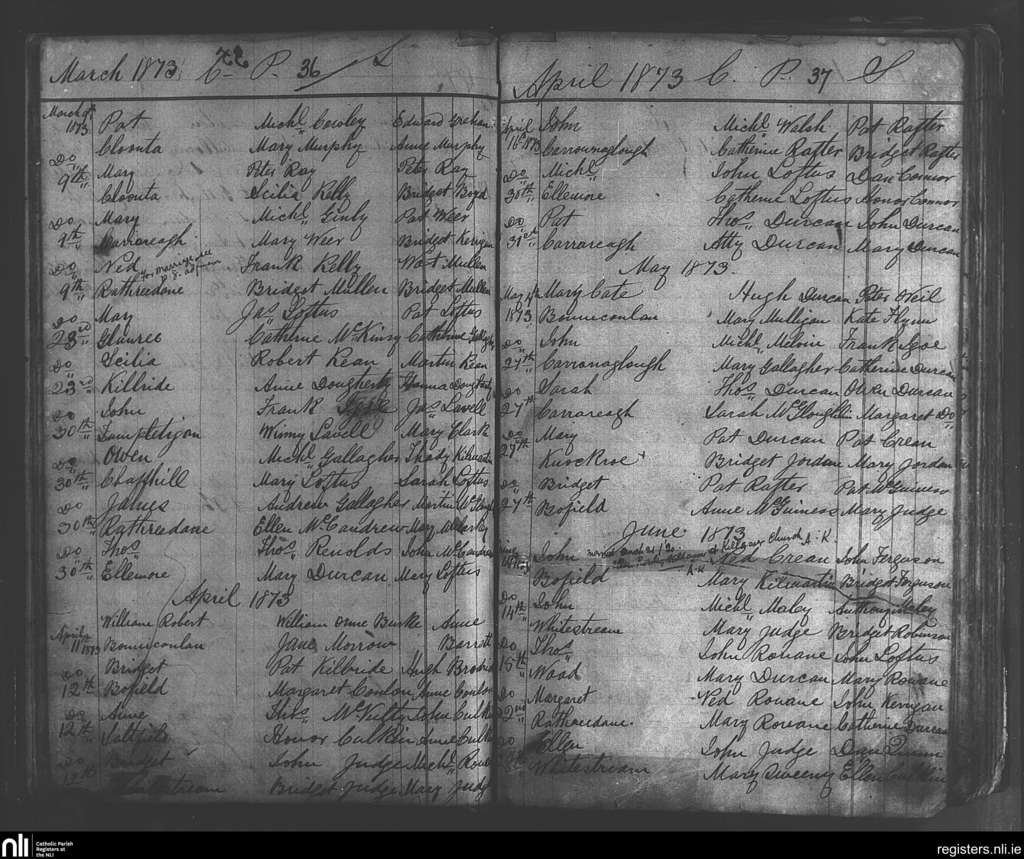 March 1873 C. P. 36 S
March 9th Pat Michl Cowley Edward Grehan
1873 Cloonta Mary Murphy Anne Murphy
Do Mary Peter Ray Peter Ray
9th Cloonta Scilia Kelly Bridget Boyd
Do Mary Michl Ginly Pat Weer
9th Carrareagh Mary Weer Bridget Kerrigan
Do Ned Frank Kelly Mullen
9th Rathreedane Bridget Mullen Bridget Mullen
Do Mary Jas Loftus Pat Loftus
23rd Glauree Catherine McKinry Catherine
Do Scilia Robert Kean Martin Kean
23rd Killride Anne Dougherty Dougherty
Do John Frank Jas Lavell
30th Templeigon Winny Lavell Mary Clark
Do Owen Michl Gallagher Thady
30th Chaffhill Mary Loftus Sarah Loftus
Do James Andrew Gallagher Martin
30th Rathreedane Ellen McCandrew Mary
Do Thos Thos Renolds John
30th Ellemore Mary Duncan Mary Loftus
April 1873
William Robert William Burke Anne
April 11 1873 Bonniconlan Jane Morrow Barrett
Do Bridget Pat Kilbride Hugh
12th Bofield Margaret Conlon Anne Conlon
Do Anne Thos McNulty John Culkin
12th Honor Culkin Anne Culkin
Do Bridget John Judge Michl
12th Whitestream Bridget Judge Mary Judge
April 1873 C. P. 37 S
April John Michl Walsh Pat Rafter
16th 1873 Carrownaglough Catherine Rafter Bridget Rafter
Do Michl John Loftus Dan Connor
30th Ellemore Catherine Loftus Honor Connor
Do Pat Thos Duncan John Duncan
Carrareagh Atty Duncan Mary Duncan
May 1873.
May Mary Cate Hugh Duncan Peter O'Neil
1873 Bonniconlan Mary Mulligan Kate Flynn
Do John Michl Melvin Frank Igoe
27th Carronaglough Mary Gallagher Catherine Duncan
Do Sarah Thos Duncan Owen Duncan
27th Carrareagh Sarah McGloughlin Margaret Do
Do Mary Pat Duncan Pat Crean
27th Knockroe Bridget Jordan Mary Jordan
Do Bridget Pat Rafter Pat McGuiness
27th Bofield Anne McGuiness Mary Judge
June 1873
John Ned Crean John Ferguson
Bofield Mary Kilmartin Bridget Ferguson
Do John Michl Maley Anthony Maley
14th Whitestream Mary Judge Bridget Robinson
Do Thos John Rouane John Loftus
15th Wood Mary Duncan Mary Rouane
Do Margaret Ned Rouane John Kerrigan
22nd Rathreedane Mary Rouane Catherine Duncan
Do Ellen John Judge Dan Quinn
Whitestream Mary Sweeny Ellen
nli
Catholic Parish
Registers at
the NLI
registers.nli.ie